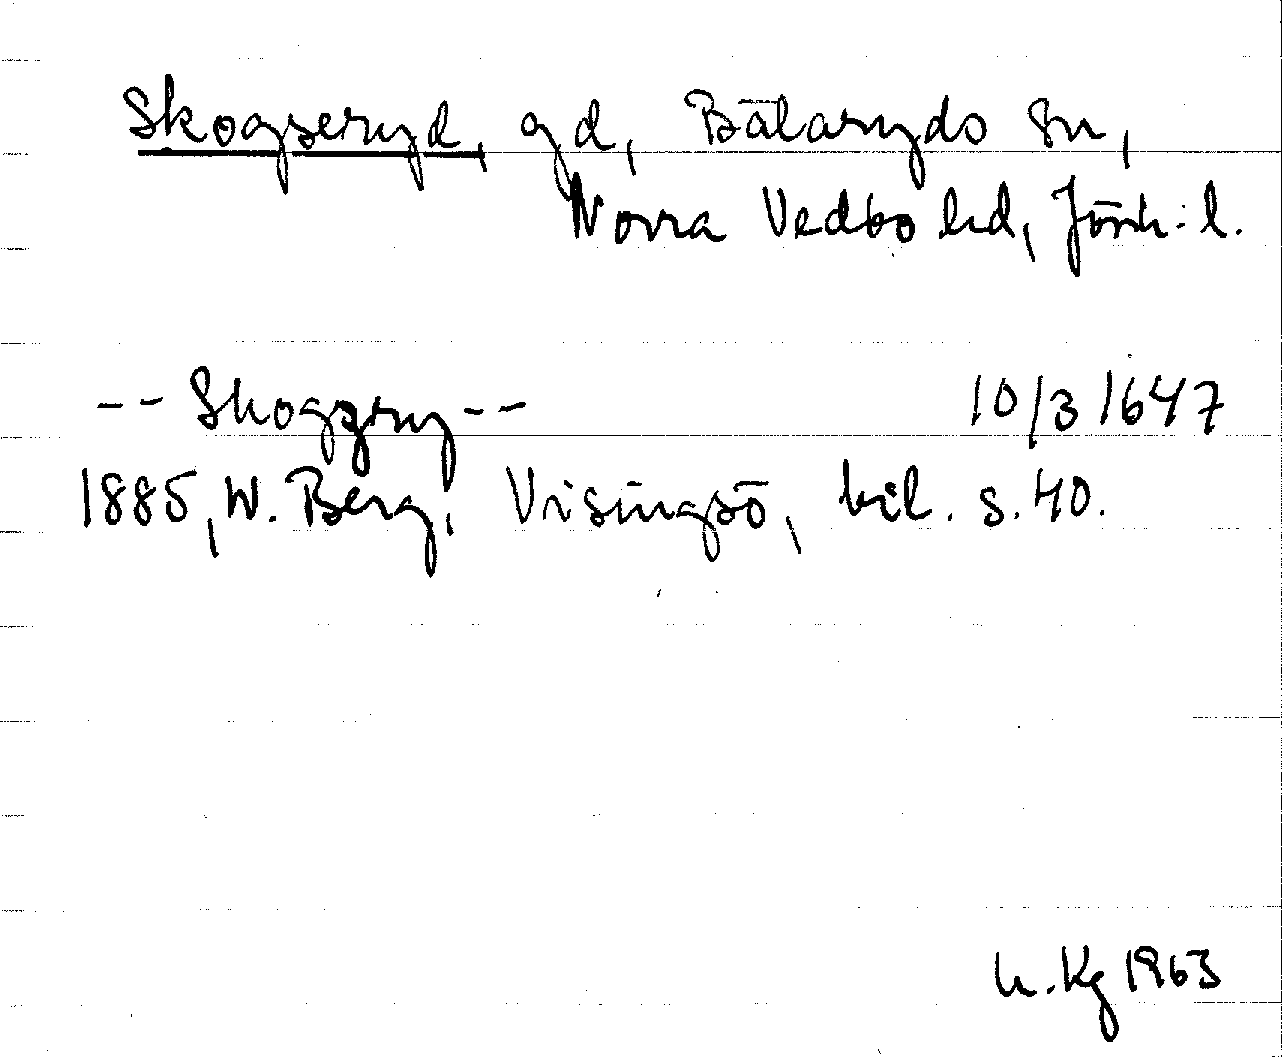 Skogseryd, gd, Bälaryds sn,
Norra Vedbo hd, Jönk: l.
-- Skoggry -- 10/3 1647
1885, W. Berg, Visingsö, bil. s. 40.
h. Kg 1963